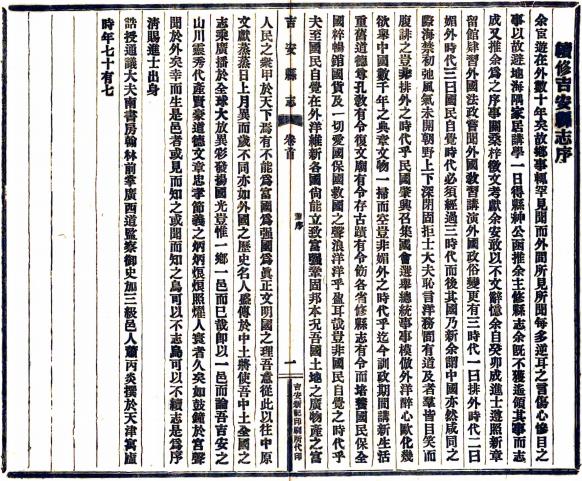 續修吉安縣志序
余宦遊在外數十年矣故鄉事輒罕見聞而外間所見所聞每多逆耳之言傷心慘目之
事以故避地海隅家居講學一日得縣紳公函推余主修縣志余旣不獲遥領其事而志
成又推余爲之序事關桑梓徵文考獻余安敢以不文辭憶余自癸卯成進士遵照新章
留館肄習外國法政嘗聞外國敎習講演外國政俗變更有三時代一曰排外時代二曰
媚外時代三曰國民自覺時代必須經過三時代而後其國乃新余謂中國亦然咸同之
際海禁初弛風氣未開朝野上下深閉固拒士大夫恥言洋務間有道及者羣皆目笑而
腹誹之豈非排外之時代乎民國肇興召集國會選舉總統事事模倣外洋醉心歐化幾
欲舉中國數千年之典章文物一掃而空豈非媚外之時代乎迄今訓政期間講新生活
重舊道德尊孔敎有令復文廟有令存古蹟有令飭各省修縣志有令而培養國民保全
國粹暢銷國貨及一切愛國保國救國之聲浪洋洋乎盈耳哉豈非國民自覺之時代乎
夫至國民自覺在外洋維新各國尙能立致富强鞏固邦本况吾國土地之廣物產之富
吉安縣志
卷首
蕭序
一
吉安新記印刷所代印
人民之衆甲於天下焉有不能爲富國爲强國爲眞正文明國之理吾意從此以往中原
文獻蒸蒸日上月異而歲不同亦如外國之歷史名人盛傳於中土將使吾中土全國之
志乘廣播於全球大放異彩發揚國光豈惟一鄉一邑而已哉卽以一邑而論吾吉安之
山川靈秀代產賢豪道德文章忠孝節義之炳炳烺烺照燿人寰者久矣如鼓鐘於宮聲
聞於外矣幸而生是邑者或見而知之或聞而知之烏可以不志烏可以不續志是爲序
淸賜進士出身
誥授通議大夫南書房翰林前掌廣西道監察御史加三級邑人蕭丙炎撰於天津寓廬
時年七十有七